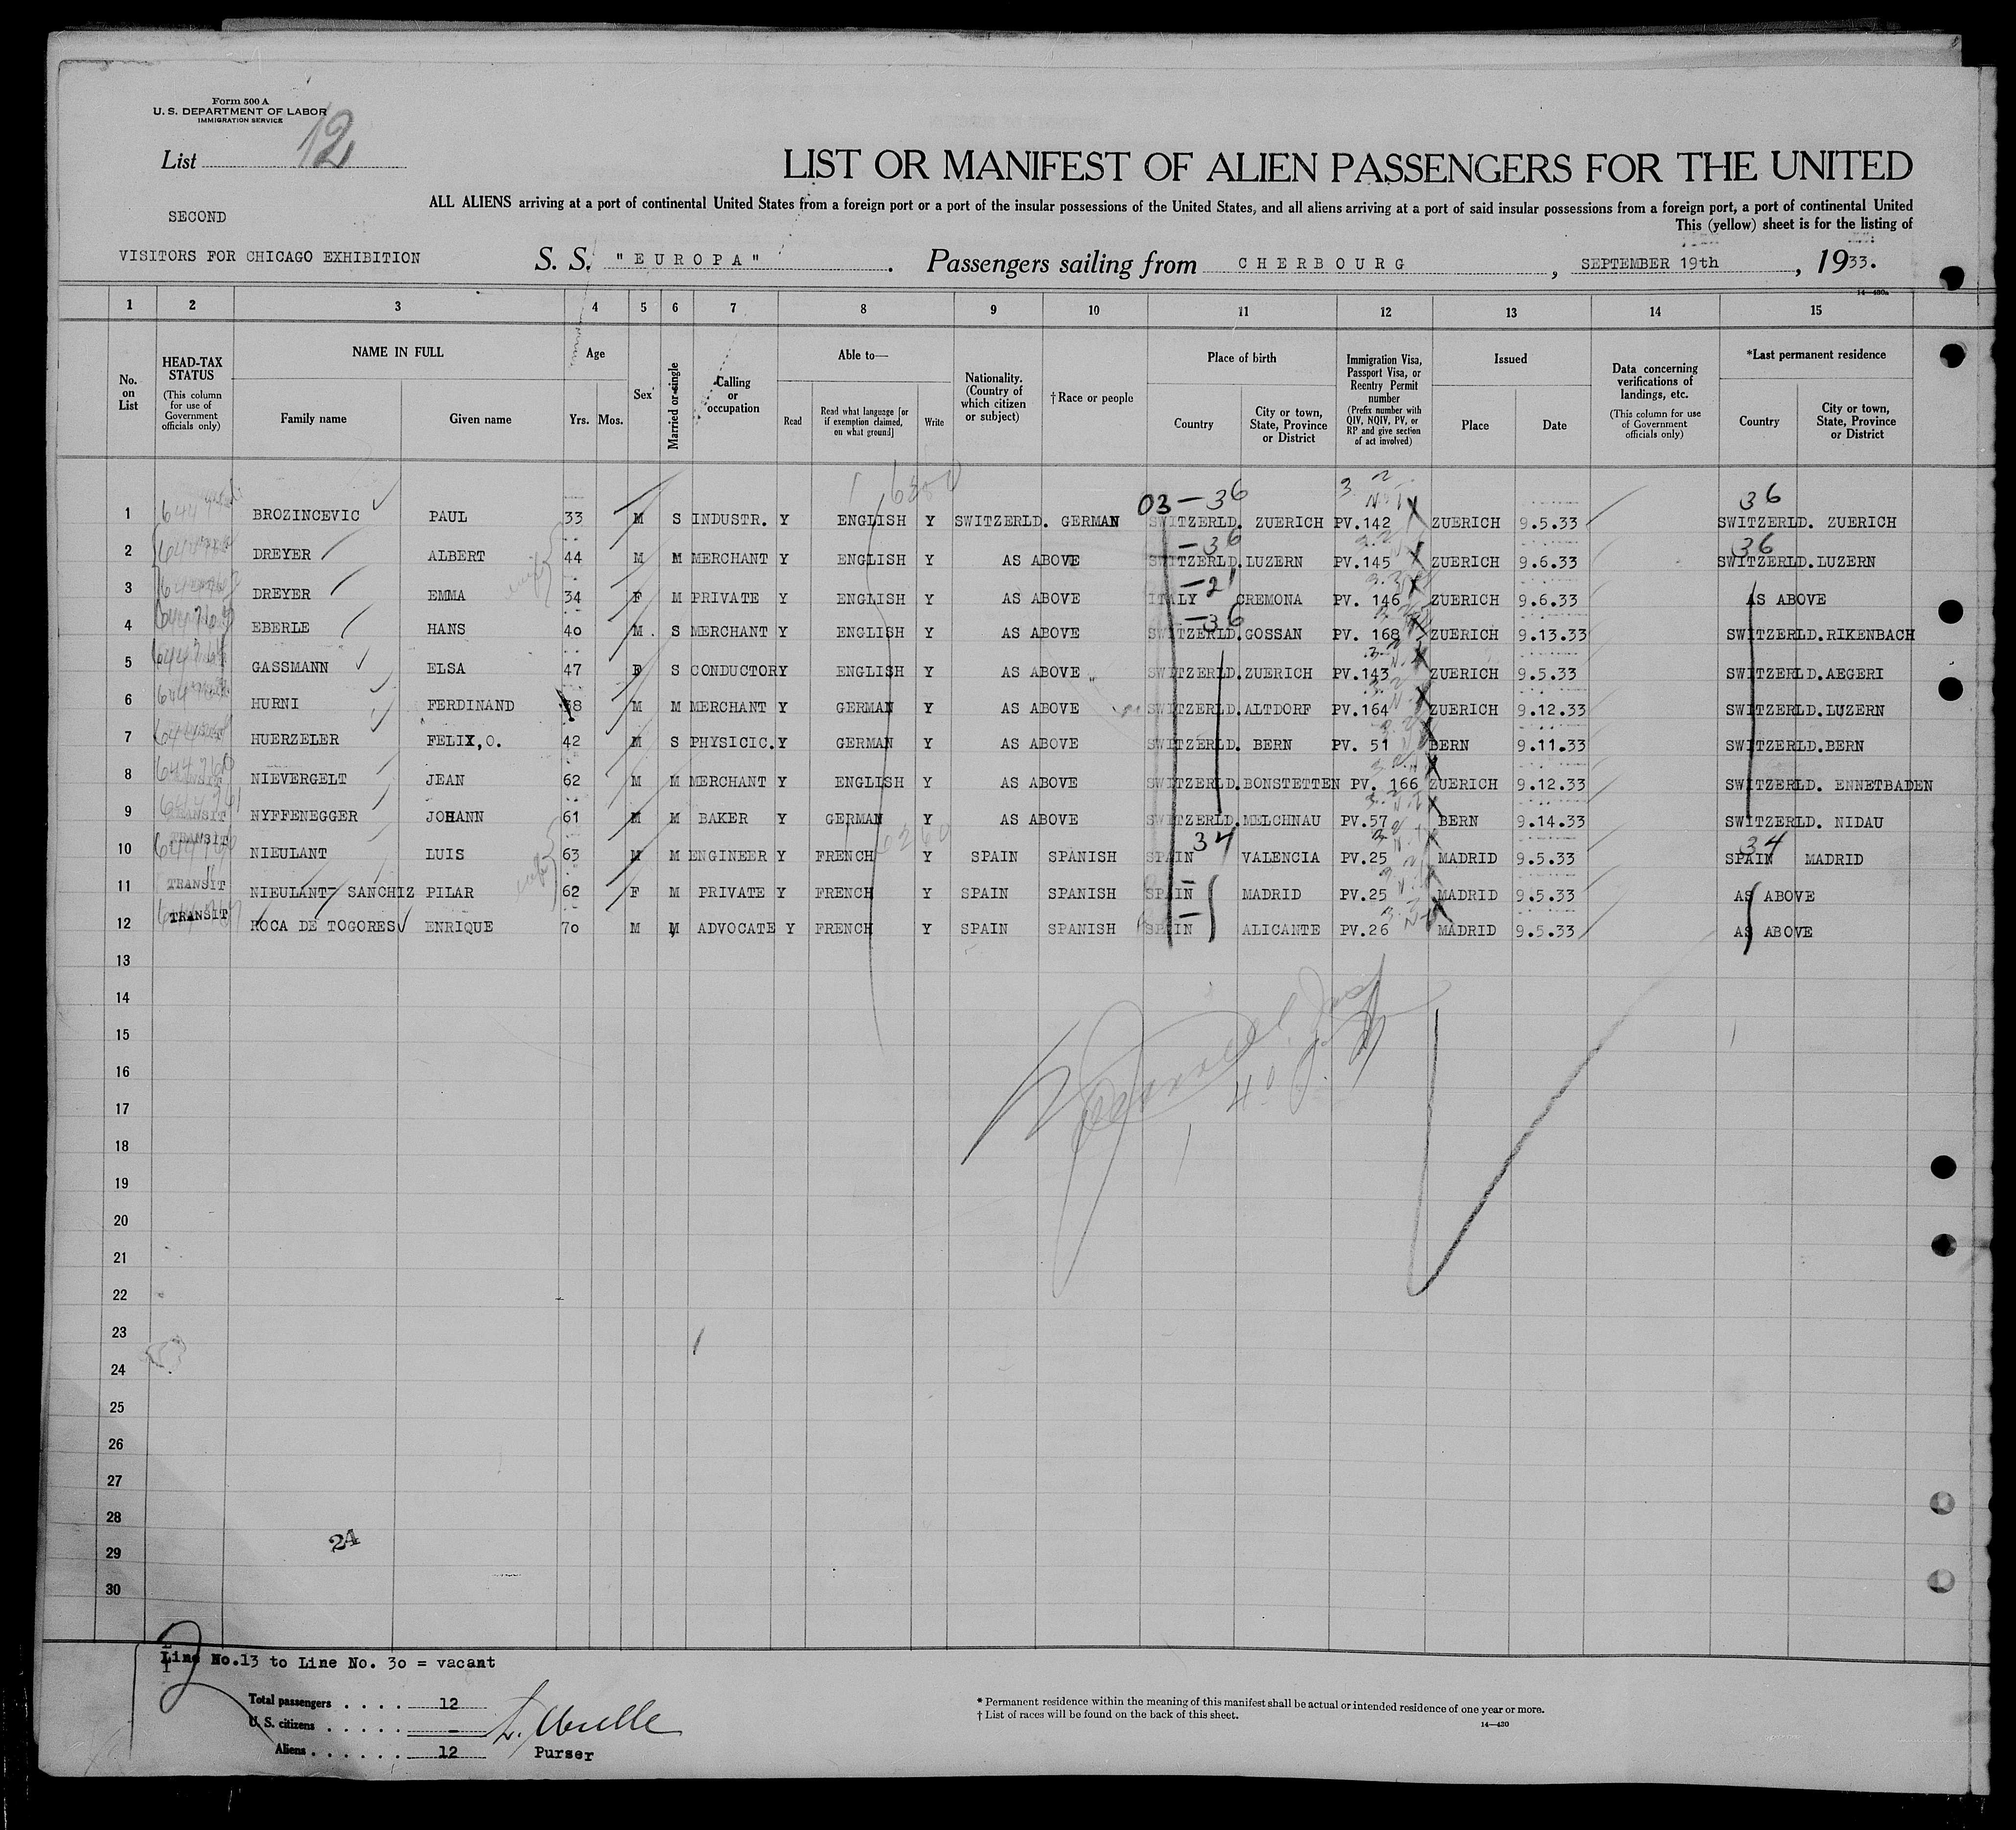 Form 500 A
U. S. DEPARTMENT OF LABOR
IMMIGRATION SERVICE
List 12
LIST OR MANIFEST OF ALIEN PASSENGERS FOR THE UNITED
ALL ALIENS arriving at a port of continental United States from a foreign port or a port of the insular possessions of the United States, and all aliens arriving at a port of said insular possessions from a foreign port, a port of continental United
This (yellow) sheet is for the listing of
SECOND
VISITORS FOR CHICAGO EXHIBITION
S. S. "EUROPA" . Passengers sailing from CHERBOURG , SEPTEMBER 19th , 1933.
14—430a
1 2 3 4 5 6 7 8 9 10 11 12 13 14 15
No. on List
HEAD-TAX STATUS (This column for use of Government officials only)
NAME IN FULL
Family name Given name
Age
Yrs. Mos.
Sex
Married or single
Calling or occupation
Able to—
Read
Read what language [or if exemption claimed, on what ground]
Write
Nationality. (Country of which citizen or subject)
†Race or people
Place of birth
Country
City or town, State, Province or District
Immigration Visa, Passport Visa, or Reentry Permit number (Prefix number with QIV, NQIV, PV, or RP and give section of act involved)
Issued
Place Date
Data concerning verifications of landings, etc. (This column for use of Government officials only)
*Last permanent residence
Country
City or town, State, Province or District
03 - 36 36
1 BROZINCEVIC PAUL 33 M S INDUSTR. Y ENGLISH Y SWITZERLD. GERMAN SWITZERLD. ZUERICH PV.142 ZUERICH 9.5.33 SWITZERLD. ZUERICH
- 36 36
2 DREYER ALBERT 44 M M MERCHANT Y ENGLISH Y AS ABOVE SWITZERLD. LUZERN PV.145 ZUERICH 9.6.33 SWITZERLD. LUZERN
- 21
3 DREYER EMMA 34 F M PRIVATE Y ENGLISH Y AS ABOVE ITALY CREMONA PV. 146 ZUERICH 9.6.33 AS ABOVE
- 36
4 EBERLE HANS 40 M. S MERCHANT Y ENGLISH Y AS ABOVE SWITZERLD. GOSSAN PV. 168 ZUERICH 9.13.33 SWITZERLD. RIKENBACH
5 GASSMANN ELSA 47 F S CONDUCTOR Y ENGLISH Y AS ABOVE SWITZERLD. ZUERICH PV.143 ZUERICH 9.5.33 SWITZERLD. AEGERI
6 HURNI FERDINAND 58 M M MERCHANT Y GERMAN Y AS ABOVE SWITZERLD. ALTDORF PV.164 ZUERICH 9.12.33 SWITZERLD. LUZERN
7 HUERZELER FELIX,O. 42 M S PHYSICIC. Y GERMAN Y AS ABOVE SWITZERLD. BERN PV. 51 BERN 9.11.33 SWITZERLD. BERN
8 NIEVERGELT JEAN 62 M M MERCHANT Y ENGLISH Y AS ABOVE SWITZERLD. BONSTETTEN PV. 166 ZUERICH 9.12.33 SWITZERLD. ENNETBADEN
9 TRANSIT NYFFENEGGER JOHANN 61 M M BAKER Y GERMAN Y AS ABOVE SWITZERLD. MELCHNAU PV.57 BERN 9.14.33 SWITZERLD. NIDAU
34 34
10 TRANSIT NIEULANT LUIS 63 M M ENGINEER Y FRENCH Y SPAIN SPANISH SPAIN VALENCIA PV.25 MADRID 9.5.33 SPAIN MADRID
11 TRANSIT NIEULANT- SANCHIZ PILAR 62 F M PRIVATE Y FRENCH Y SPAIN SPANISH SPAIN MADRID PV.25 MADRID 9.5.33 AS ABOVE
12 TRANSIT ROCA DE TOGORES ENRIQUE 70 M M ADVOCATE Y FRENCH Y SPAIN SPANISH SPAIN ALICANTE PV.26 MADRID 9.5.33 AS ABOVE
13
14
15
16
17
18
19
20
21
22
23
24
25
26
27
28
29
30
24
Line No.13 to Line No. 30 = vacant
Total passengers . . . . 12
U. S. citizens . . . . . -
Aliens . . . . . . 12
Purser
* Permanent residence within the meaning of this manifest shall be actual or intended residence of one year or more.
† List of races will be found on the back of this sheet.
14—430